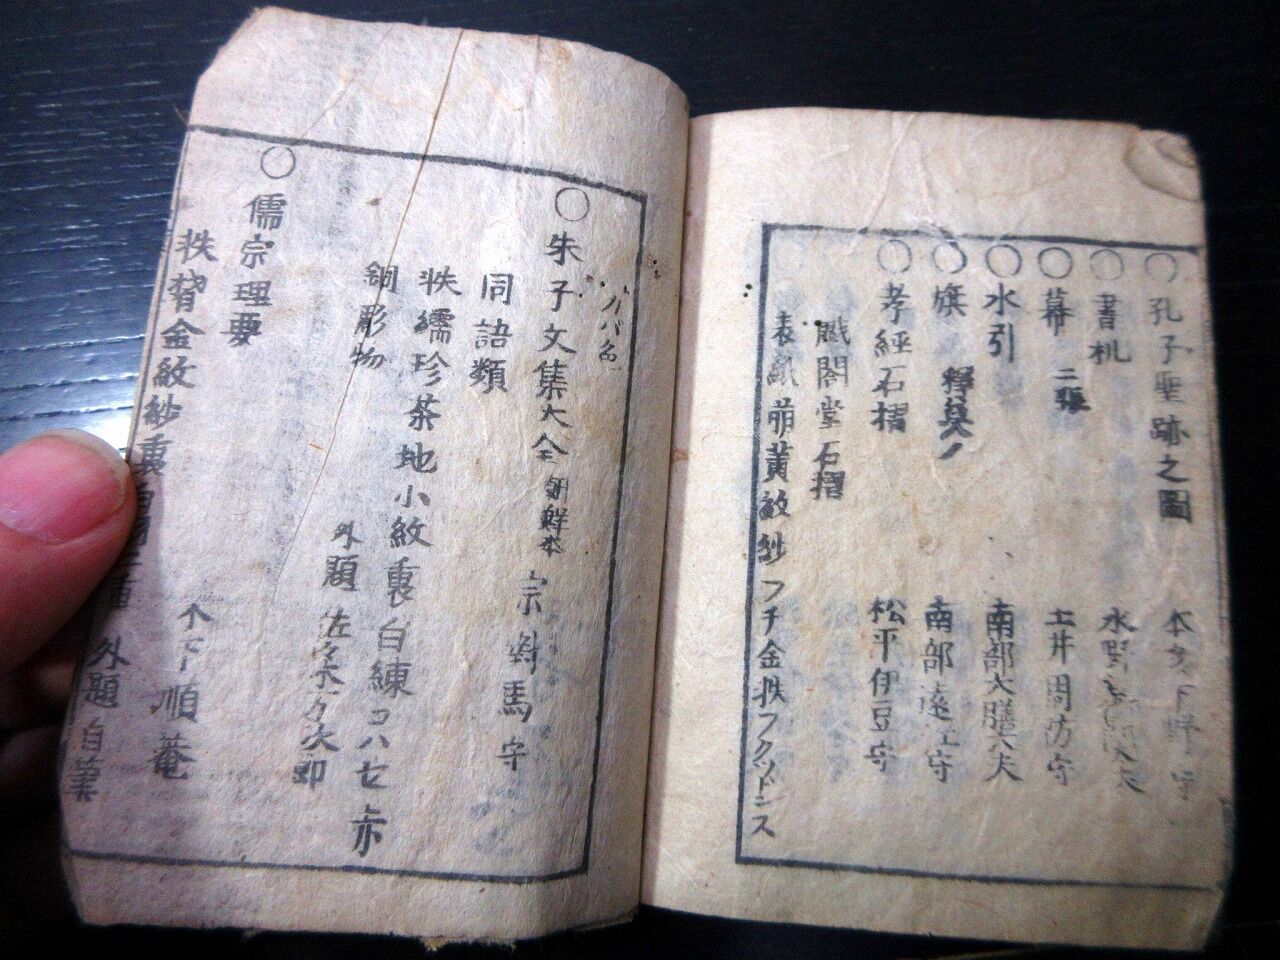 ○孔子聖跡之圖 本多下野守
○書机 水野
○幕 二張 土井周防守
○水引 南部大膳大夫
○旗 釋奠ノ 南部遠江守
○孝經石摺 松平伊豆守
戲閣堂石摺
表紙萠黄紋紗フチ金
○朱子文集大全 朝鮮本 宗對馬守
同語類
帙繻珍茶地小紋裏白練コハセ赤
銅彫物 外題 佐々木万次郎
○儒宗理要 木下順菴
帙 金紋紗裏 外題自筆